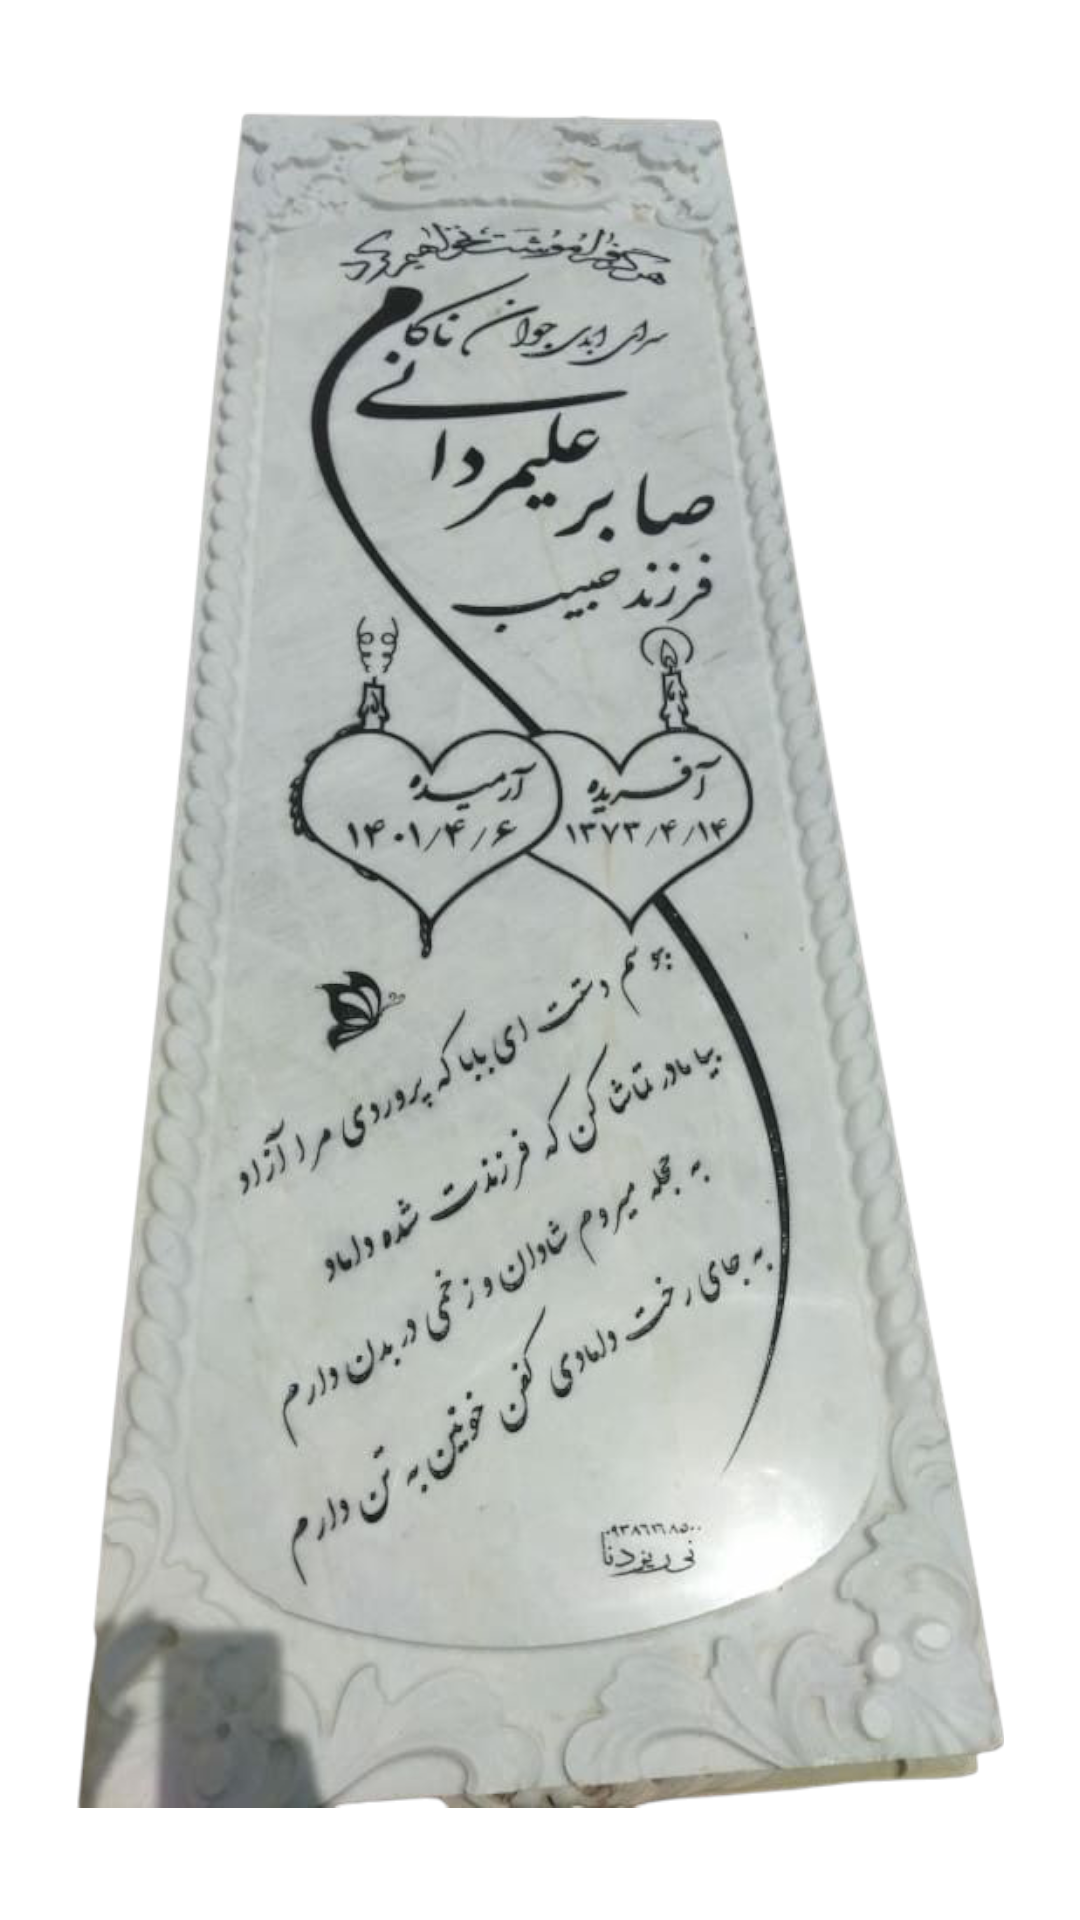 هرگز فراموشت نخواهیم کرد
سرای ابدی جوان ناکام
صابر علیمردانی
فرزند حبیب
آفریده
۱۳۷۳/۴/۱۴
آرمیده
۱۴۰۱/۴/۶
ببوسم دستت ای بابا که پروردی مرا آزاد
بیا مادر تماشا کن که فرزندت شده داماد
به حجله میروم شادان و زخمی در بدن دارم
به جای رخت دامادی کفن خونین به تن دارم
نی ریز دنا